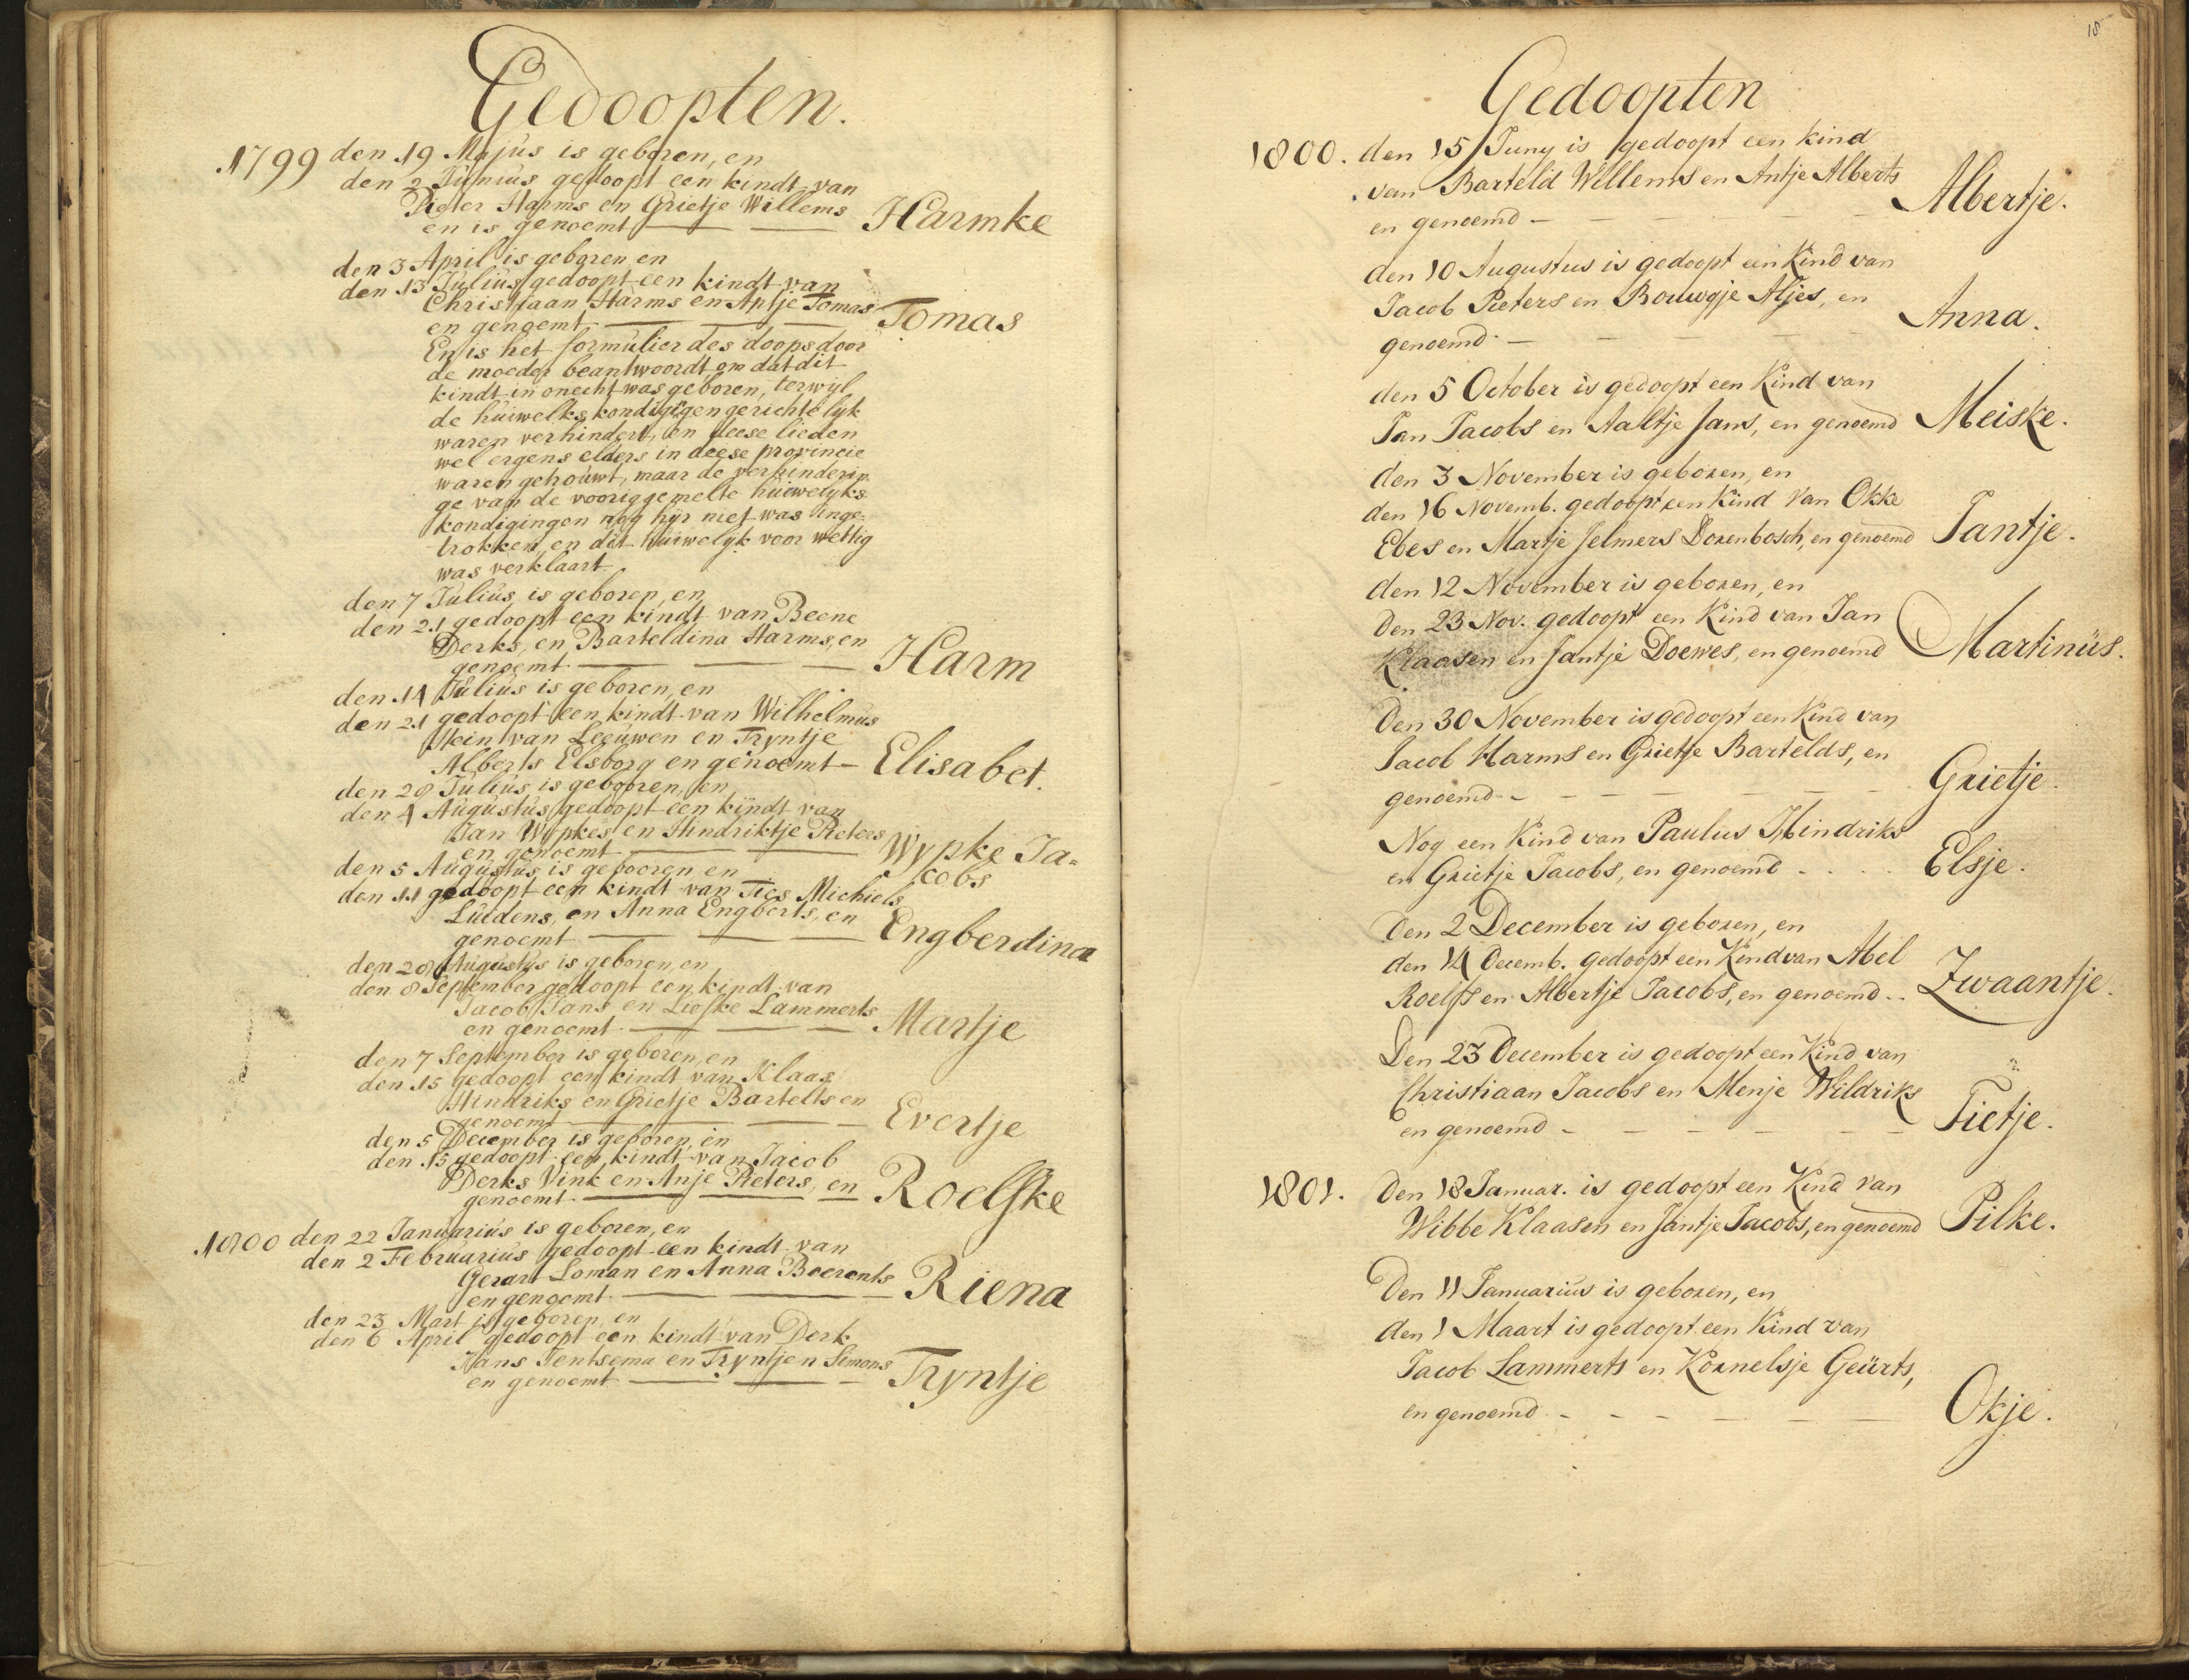 Gedoopten.
1799 den 19 Majus is geboren, en
den 2 Junius gedoopt een kindt van
Pieter Harms en Grietje Willems
en is genoemt — — Harmke
den 3 April is geboren en
den 13 Julius gedoopt een kindt van
Christiaan Harms en Antje Tomas
en genoemt — — — Tomas
En is het formulier des doops door
de moeder beantwoordt om dat dit
kindt in onecht was geboren, terwyl
de huiwelks kondigigen gerichtelyk
waren verhindert, en deese lieden
wel ergens elders in deese provincie
waren getrouwt, maar de verhinderin
ge van de vooriggemelte huiwelyks
kondigingen nog hijr niet was inge-
trokken, en dit huiwelyk voor wettig
was verklaart.
den 7 Julius is geboren, en
den 21 gedoopt een kindt van Beene
Derks, en Barteldina Harms, en
genoemt — — — Harm
den 14 Julius is geboren, en
den 21 gedoopt een kindt van Wilhelmus
Hein van Leeuwen en Tryntje
Alberts Elsborg en genoemt — Elisabet.
den 28 Julius is gebooren, en
den 4 Augustus gedoopt een kindt van
Jan Wypkes en Hindriktje Pieters
en genoemt — — Wypke Ja=
cobs
den 5 Augustus is gebooren en
den 11 gedoopt een kindt van Ties Michiels
Luidens, en Anna Engberts, en
genoemt — — — Engberdina
den 28 Augustus is geboren, en
den 8 September gedoopt een kindt van
Jacob Jans en Liefke Lammerts
en genoemt — — — Martje
den 7 September is geboren, en
den 15 gedoopt een kindt van Klaas
Hindriks en Grietje Bartelts en
genoemt — — — Evertje
den 5 December is geboren, en
den 15 gedoopt een kindt van Jacob
Derks Vink en Anje Pieters, en
genoemt. — — — Roelfke
1800 den 22 Januarius is geboren, en
den 2 Februarius gedoopt een kindt van
Gerart Loman en Anna Boerents
en genoemt — — Riena
den 23 Mart is geboren, en
den 6 April gedoopt een kindt van Derk
Hans Tentsema en Tryntjen Simons
en genoemt — — — Tryntje
18
Gedoopten
1800. den 15 Juny is gedoopt een kind
van Barteld Willems en Antje Alberts
en genoemd — — — — — Albertje.
den 10 Augustus is gedoopt een Kind van
Jacob Pieters en Bouwgje Aljes, en
genoemd. — — — — — Anna.
den 5 October is gedoopt een Kind van
Jan Jacobs en Aaltje Jans, en genoemd Meiske.
den 3 November is geboren, en
den 16 Novemb. gedoopt een Kind van Okke
Ebes en Martje Jelmers Dorenbosch, en genoemd Jantje.
den 12 November is geboren, en
Den 23 Nov. gedoopt een Kind van Jan
Klaasen en Jantje Doewes, en genoemd Martinus.
Den 30 November is gedoopt een Kind van
Jacob Harms en Grietje Bartelds, en
genoemd - - - - - - - Grietje.
Nog een Kind van Paulus Hindriks
en Grietje Jacobs, en genoemd - . . . . Elsje.
Den 2 December is geboren, en
den 14 Decemb. gedoopt een Kind van Abel
Roelfs en Albertje Jacobs, en genoemd - . Zwaantje.
Den 23 December is gedoopt een Kind van
Christiaan Jacobs en Menje Wildriks
en genoemd - - - - - - Tietje.
1801. Den 18 Januar. is gedoopt een Kind van
Wibbe Klaasen en Jantje Jacobs, en genoemd Pilke.
Den 11 Januarius is geboren, en
den 1 Maart is gedoopt een Kind van
Jacob Lammerts en Kornelsje Geurts,
en genoemd - - - - - - Okje.